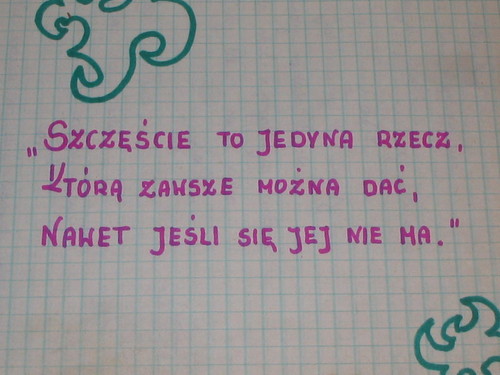 „Szczęście to jedyna rzecz,
którą zawsze można dać,
Nawet jeśli się jej nie ma."